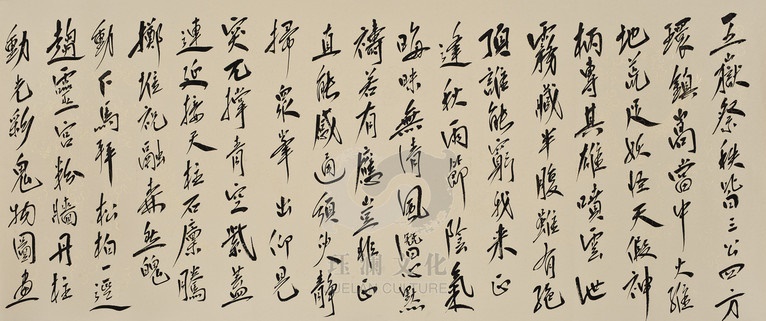 五嶽祭秩皆三公四方
環鎮嵩當中火維
地荒足妖怪天假神
柄專其雄噴雲泄
霧藏半腹雖有絕
頂誰能窮我來正
逢秋雨節陰氣
晦昧無清風潛心默
禱若有應豈非正
直能感通須臾靜
掃眾峯出仰見
突兀撐青空紫蓋
連延接天柱石廩騰
擲堆祝融森然魄
動下馬拜松柏一逕
趨靈宮粉牆丹柱
動光彩鬼物圖畫
珏澜文化
JUELAN CULTURE